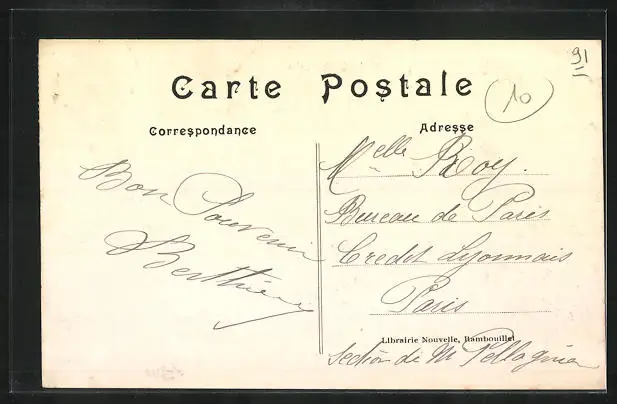 91
Carte Postale
10
Correspondance
Adresse
Melle Roy.
Bon Souvenir
Bureau de Paris
Credit Lyonnais
Paris
Librairie Nouvelle, Rambouillet
Section de M